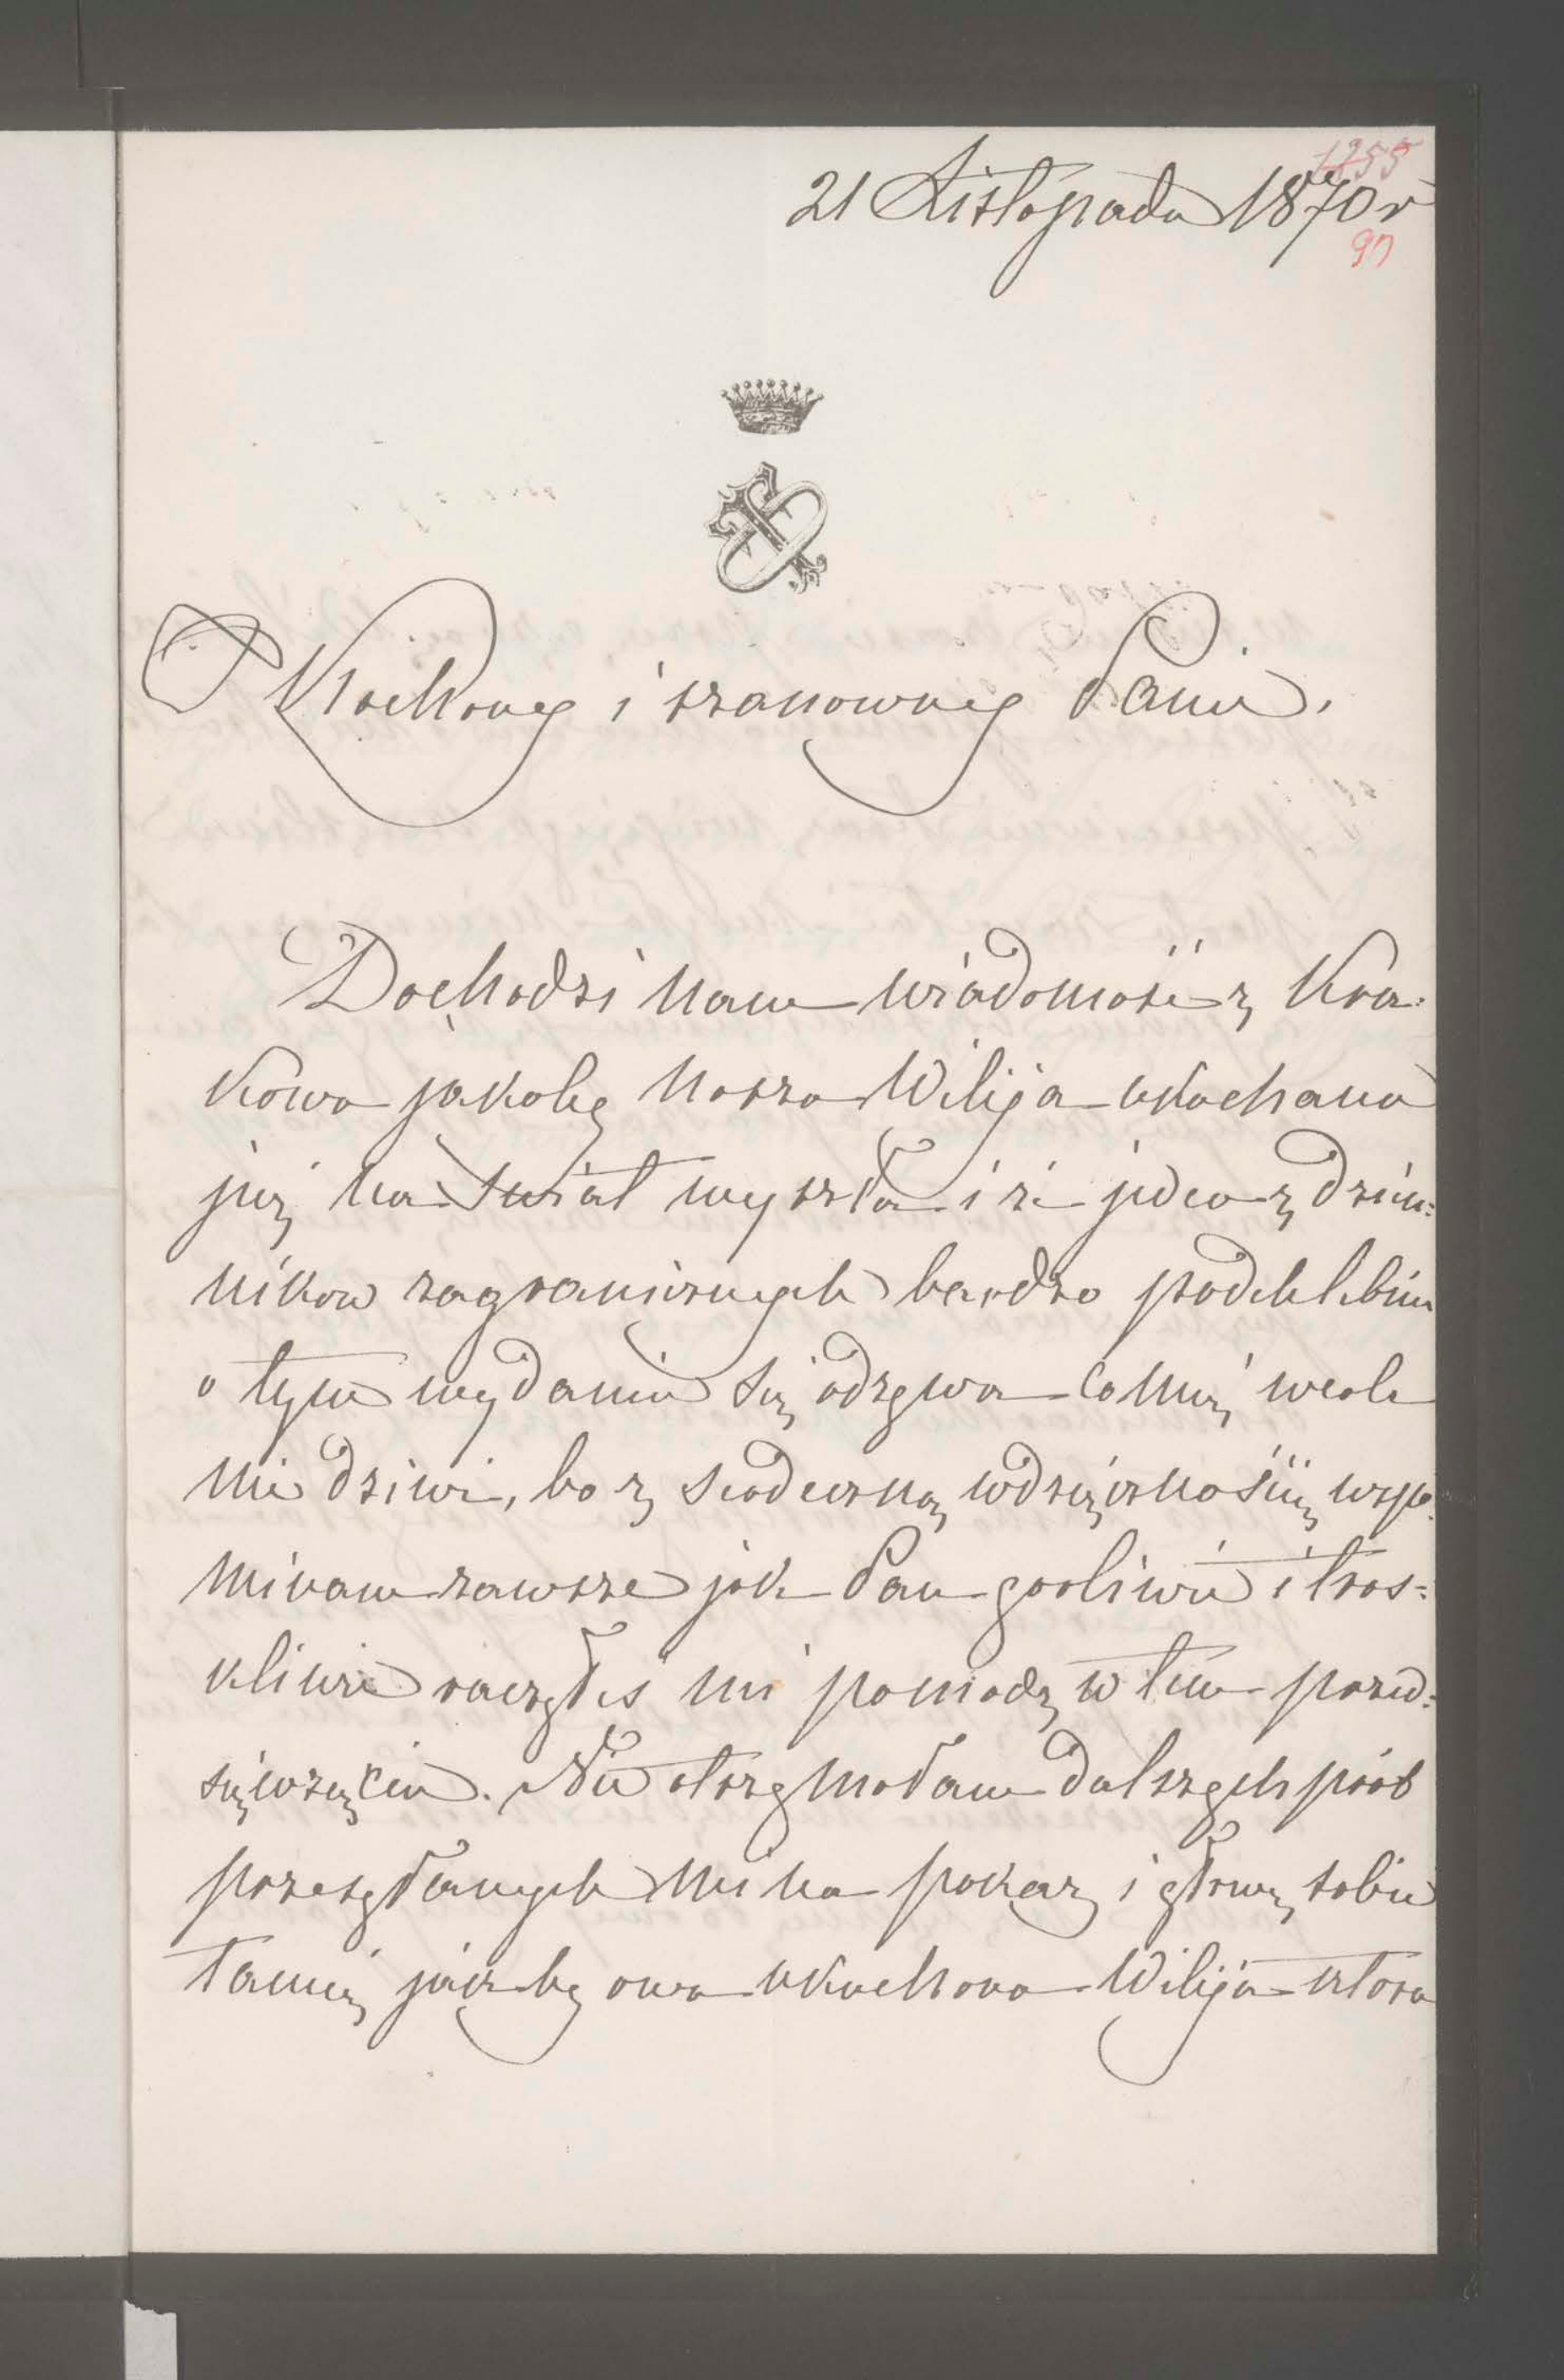 1255
21 Listopada 1870 r
97
Kochany i szanowny Panie,
Dochodzi nam wiadomość z Kra:
kowa jakoby nasza Wilija ukochana
już na świat wyszła i że jeden z dzien:
ników zagranicznych bardzo podchlebnie
o tym wydaniu się odzywa co mię wcale
nie dziwi, bo z serdeczną wdzięcznością wspo:
minam zawsze jak Pan gorliwie i tros:
kliwie raczyłeś mi pomódz w tem przed:
sięwzięciu. Nie otrzymałam dalszych prób
przesyłanych mi na pokaz i głowę sobie
łamię jakby owa ukochana Wilija która